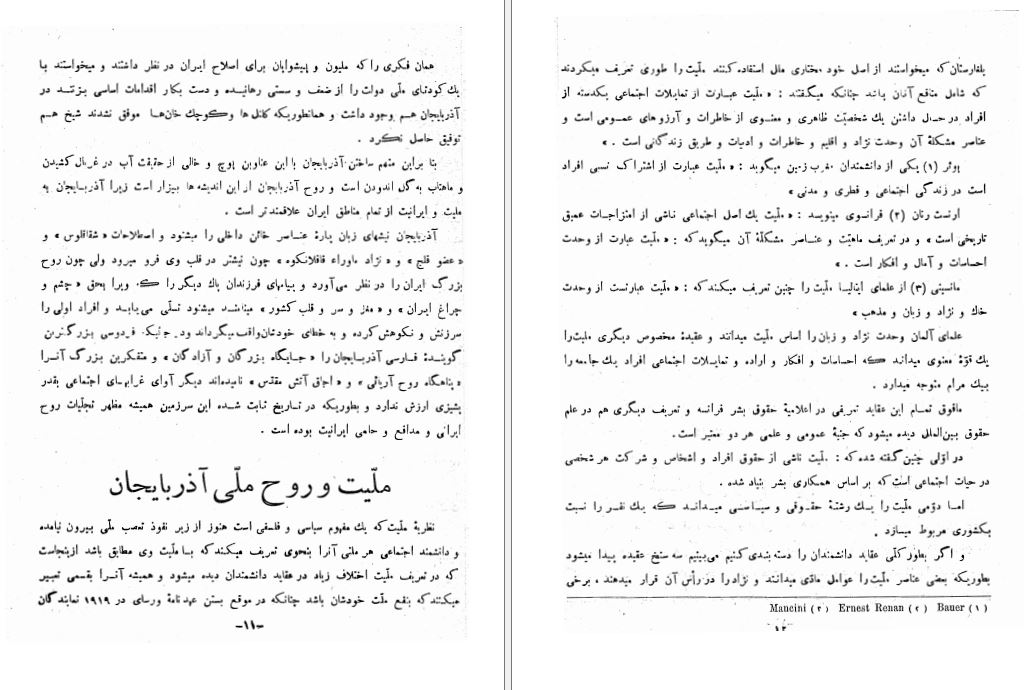 همان فکری را که ملیون و پیشوایان برای اصلاح ایران در نظر داشتند و میخواستند با
یك کودتای ملّی دولت را از ضعف و سستی رهانیده و دست بکار اقدامات اساسی بزنند در
آذربایجان هم وجود داشت و همانطوریکه کانال‌ها و کوچك خان‌ها موفق نشدند شیخ هم
توفیق حاصل نکرد .
بنا براین متهم ساختن آذربایجان با این عناوین پوچ و خالی از حقیقت آب در غربال کشیدن
و ماهتاب به گل اندودن است و روح آذربایجان از این اندیشه ها بیزار است زیرا آذربایجان به
ملیت و ایرانیت از تمام مناطق ایران علاقمندتر است .
آذربایجان نیشهای زبان پارهٔ عناصر خائن داخلی را میشنود و اصطلاحات « شقاقلوس » و
« عضو فلج » و « نژاد ماوراء قافلانکوه » چون نیشتر در قلب وی فرو میرود ولی چون روح
بزرگ ایران را در نظر می‌آورد و بیامهای فرزندان پاك دیگر را که ویرا بحق « چشم و
چراغ ایران » و « مغز و سر و قلب کشور » مینامند میشنود تسلّی می‌یابد و افراد اولی را
سرزنش و نکوهش کرده و به خطای خودشان واقف میگرداند در جائیکه فردوسی بزرگترین
گویندهٔ فارسی آذربایجان را « جایگاه بزرگان و آزادگان » و متفکرین بزرگ آنرا
« پناهگاه روح آریائی » و « اجاق آتش مقدّس » نامیده‌اند دیگر آوای غرابهای اجتماعی بقدر
پشیزی ارزش ندارد و بطوریکه در تاریخ ثابت شده این سرزمین همیشه مظهر تجلّیات روح
ایرانی و مدافع و حامی ایرانیت بوده است .
ملّیت و روح ملّی آذربایجان
نظریهٔ ملّیت که یك مفهوم سیاسی و فلسفی است هنوز از زیر نفوذ تعصب ملّی بیرون نیامده
و دانشمند اجتماعی هر ملتی آنرا بنحوی تعریف میکند که با ملیت وی مطابق باشد ازینجاست
که در تعریف ملّیت اختلاف زیاد در عقاید دانشمندان دیده میشود و همیشه آنرا بقسمی تعبیر
میکنند که بنفع ملّت خودشان باشد چنانکه در موقع بستن عهدنامهٔ ورسای در ۱۹۱۹ نمایندگان
-۱۱-
بلغارستان که میخواستند از اصل خود مختاری ملل استفاده کنند ملّیت را طوری تعریف میکردند
که شامل منافع آنان باشد چنانکه میگفتند : « ملّیت عبارت از تمایلات اجتماعی یکدسته از
افراد در حال داشتن یك شخصیّت ظاهری و معنوی از خاطرات و آرزوهای عمومی است و
عناصر مشکلهٔ آن وحدت نژاد و اقلیم و خاطرات و ادبیات و طریق زندگانی است . »
بوئر (۱) یکی از دانشمندان مغرب زمین میگوید : « ملّیت عبارت از اشتراك نسبی افراد
است در زندگی اجتماعی و فطری و مدنی »
ارنست رنان (۲) فرانسوی مینویسد : « ملّیت یك اصل اجتماعی ناشی از امتزاجات عمیق
تاریخی است » و در تعریف ماهیّت و عناصر مشکلهٔ آن میگوید که : « ملّیت عبارت از وحدت
احساسات و آمال و افکار است . »
مانسینی (۳) از علمای ایتالیا ملّیت را چنین تعریف میکند که : « ملّیت عبارتست از وحدت
خاك و نژاد و زبان و مذهب »
علمای آلمان وحدت نژاد و زبان را اساس ملّیت میدانند و عقیدهٔ مخصوص دیگری ملیت‌را
یك قوّهٔ معنوی میداند که احساسات و افکار و اراده و تمایلات اجتماعی افراد یك جامعه را
بیك مرام متوجه میدارد .
مافوق تمام این عقاید تعریفی در اعلامیهٔ حقوق بشر فرانسه و تعریف دیگری هم در علم
حقوق بین‌الملل دیده میشود که جنبهٔ عمومی و علمی هر دو معتبر است.
در اوّلی چنین گفته شده که : ملّیت ناشی از حقوق افراد و اشخاص و شرکت هر شخصی
در حیات اجتماعی است که بر اساس همکاری بشر بنیاد شده .
اما دوّمی ملّیت را یك رشتهٔ حقوقی و سیاسی میداند که یك نفر را نسبت
بکشوری مربوط میسازد .
و اگر بطور کلّی عقاید دانشمندان را دسته بندی کنیم می‌بینیم سه سنخ عقیده پیدا میشود
بطوریکه بعضی عناصر ملّیت را عوامل مادّی میدانند و نژاد را در رأس آن قرار میدهند ، برخی
(۱) Bauer (۲) Ernest Renan (۳) Mancini
۱۲